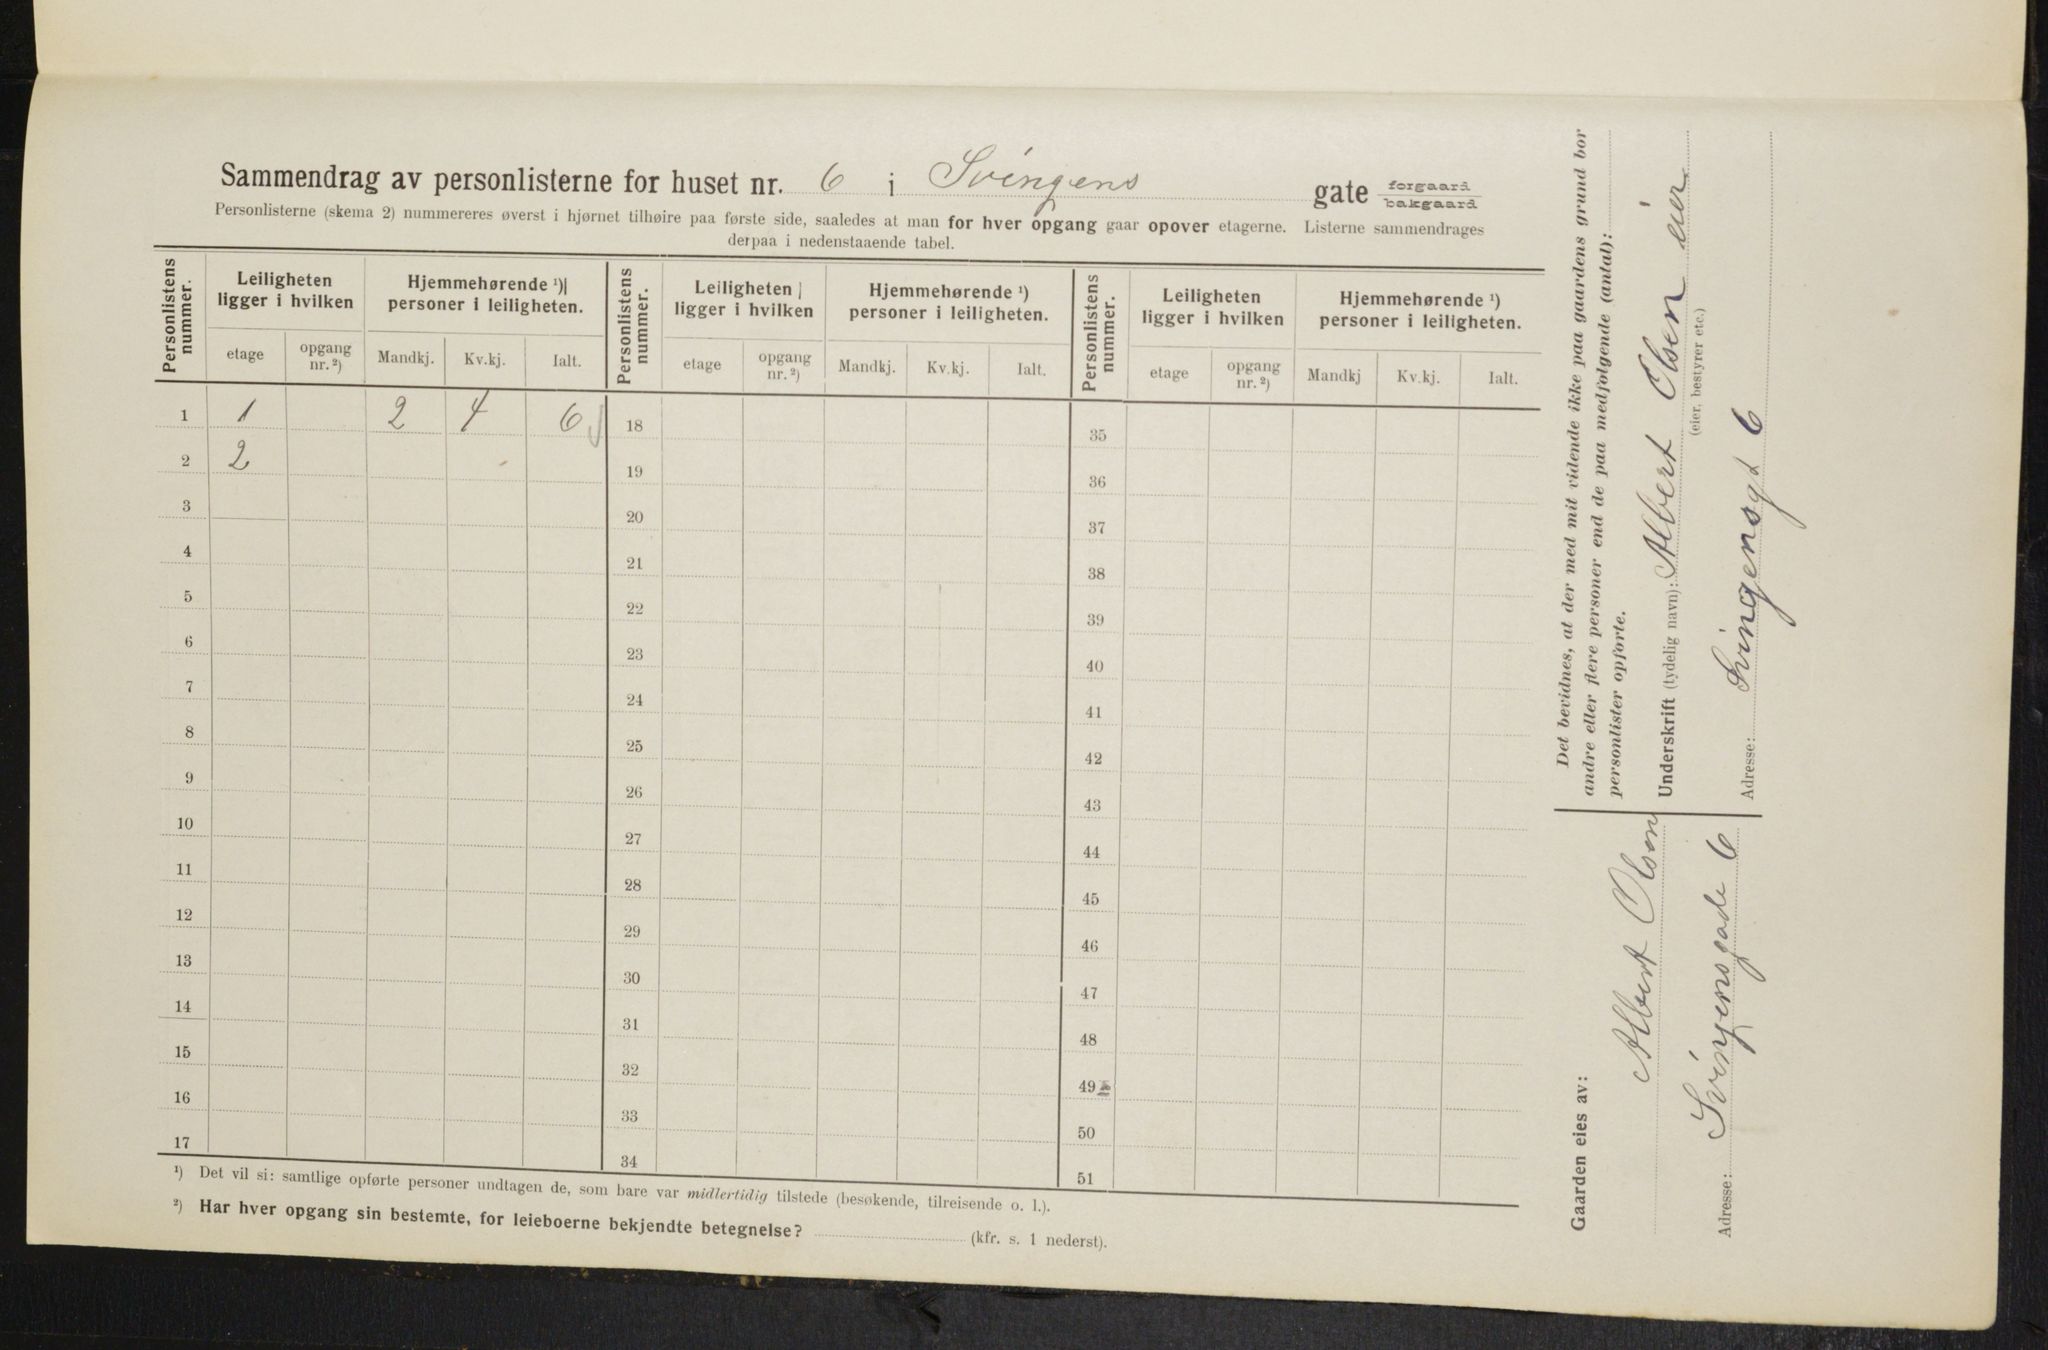 Sammendrag av personlisterne for huset nr. 6 i Svingens gate forgaard bakgaard
Personlisterne (skema 2) nummereres øverst i hjørnet tilhøire paa første side, saaledes at man for hver opgang gaar opover etagerne. Listerne sammendrages
derpaa i nedenstaaende tabel.
Personlistens nummer. Leiligheten ligger i hvilken Hjemmehørende ¹) personer i leiligheten. Personlistens nummer. Leiligheten ligger i hvilken Hjemmehørende ¹) personer i leiligheten. Personlistens nummer. Leiligheten ligger i hvilken Hjemmehørende ¹) personer i leiligheten.
etage opgang nr. ²) Mandkj. Kv.kj. Ialt. etage opgang nr. ²) Mandkj. Kv.kj. Ialt. etage opgang nr. ²) Mandkj Kv.kj. Ialt.
1 1 2 4 6 18 35
2 2 19 36
3 20 37
4 21 38
5 22 39
6 23 40
7 24 41
8 25 42
9 26 43
10 27 44
11 28 45
12 29 46
13 30 47
14 31 48
15 32 49
16 33 50
17 34 51
¹) Det vil si: samtlige opførte personer undtagen de, som bare var midlertidig tilstede (besøkende, tilreisende o. l.).
²) Har hver opgang sin bestemte, for leieboerne bekjendte betegnelse? (kfr. s. 1 nederst).
Det bevidnes, at der med mit vidende ikke paa gaardens grund bor
andre eller flere personer end de paa medfølgende (antal):
personlister opførte.
Underskrift (tydelig navn): Albert Olsen eier
(eier, bestyrer etc.)
Adresse: Svingensgt 6
Gaarden eies av:
Albert Olsen
Adresse: Svingensgade 6